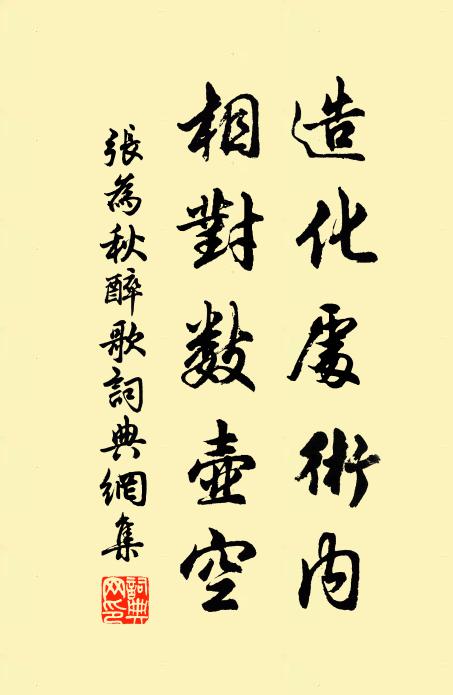 造化處術內
相對數壺空
張為秋醉歌詞典網集
詞典网印